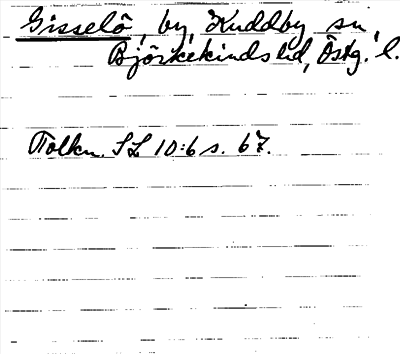 Gisselö, by, Kuddby sn,
Björkekinds hd, Östg. l.
Tolkn. SL 10:6 s. 67.